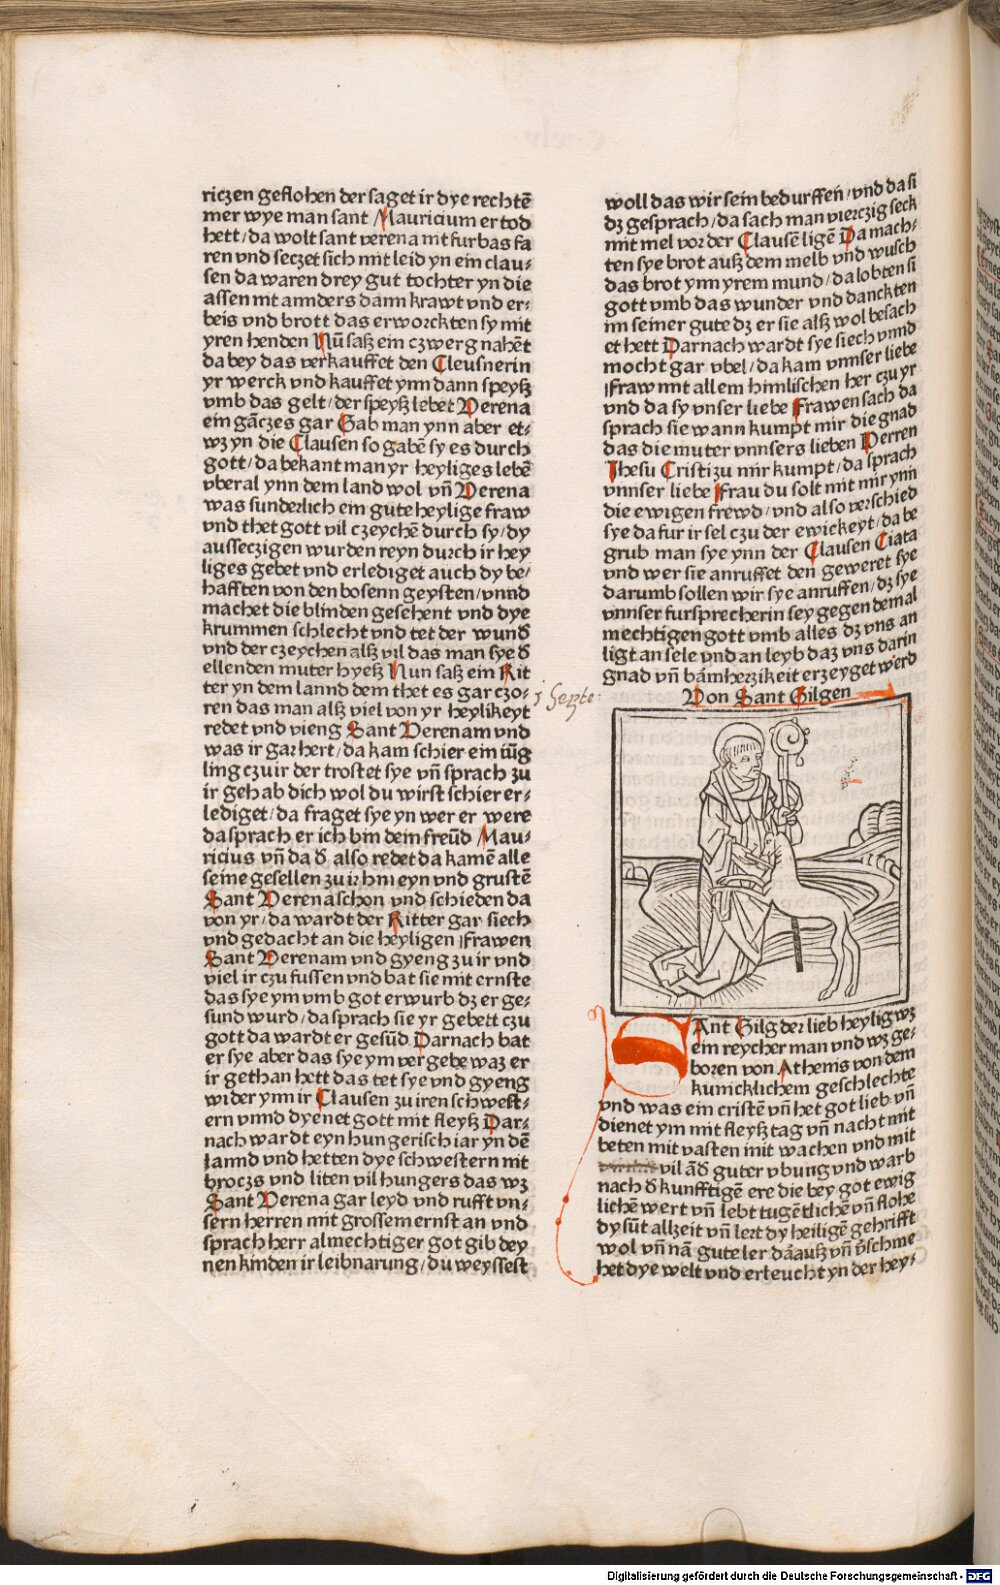 riczen geflohen der saget ir dye rechtē
mer wye man sant Mauricium ertod
hett/da wolt sant verena nit furbas fa
ren vnd seczet sich mit leid yn ein clau⸗
sen da waren drey gut tochter yn die
assen nit annders dann krawt vnd er⸗
beis vnd brott das erworckten sy mit
yren henden Nū saß ein czwerg nahēt
da bey das verkauffet den Cleusnerin
yr werck vnd kauffet ynn dann speyß
vmb das gelt/der speyß lebet Verena
ein gāczes gar Gab man ynn aber et⸗
wz yn die Clausen so gabē sy es durch
gott/da bekant man yr heyliges lebē
vberal ynn dem land wol vñ Verena
was sunderlich ein gute heylige fraw
vnd thet gott vil czeychē durch sy/dy
ausseczigen wurden reyn durch ir hey
liges gebet vnd erlediget auch dy be⸗
hafften von den bosenn geysten/vnnd
machet die blinden gesehent vnd dye
krummen schlecht vnd tet der wund
vnd der czeychen alß vil das man sye d̄
ellenden muter hyeß Nun saß ein Rit
ter yn dem lannd dem thet es gar czo⸗
ren das man alß viel von yr heylikeyt
redet vnd vieng Sant Verenam vnd
was ir gar hert/da kam schier ein iūg
ling czu ir der trostet sye vñ sprach zu
ir gehab dich wol du wirst schier er⸗
lediget/da fraget sye yn wer er were
da sprach er ich bin dein freūd Mau⸗
ricius vñ da d̄ also redet da kamē alle
seine gesellen zu ir hin eyn vnd grustē
Sant Verena schon vnd schieden da
von yr/da wardt der Ritter gar siech
vnd gedacht an die heyligen Frawen
Sant Verenam vnd gyeng zu ir vnd
viel ir czu fussen vnd bat sie mit ernste
das sye ym vmb got erwurb dz er ge⸗
sund wurd/da sprach sie yr gebett czu
gott da wardt er gesūd Darnach bat
er sye aber das sye ym vergebe waz er
ir gethan hett das tet sye vnd gyeng
wider ynn ir Clausen zu iren schwest⸗
ern vnnd dyenet gott mit fleyß Dar⸗
nach wardt eyn hungerisch iar yn dē
lannd vnd hetten dye schwestern nit
broczs vnd liten vil hungers das wz
Sant Verena gar leyd vnd rufft vn⸗
sern herren mit grossem ernst an vnd
sprach herr almechtiger got gib dey
nen kinden ir leibnarung/du weyssest
woll das wir sein bedurffen/vnd da si
dz gesprach/da sach man vierczig seck
mit mel vor der Clausē ligē Da mach⸗
ten sye brot auß dem melb vnd wusch
das brot ynn yrem mund/da lobten si
gott vmb das wunder vnd danckten
im seiner gute dz er sie alß wol besach
et hett Darnach wardt sye siech vnnd
mocht gar vbel/da kam vnnser liebe
Fraw mit allem himlischen her czu yr
vnd da sy vnser liebe Frawen sach da
sprach sie wann kumpt mir die gnad
das die muter vnnsers lieben Herren
Jhesu Cristi zu mir kumpt/da sprach
vnnser liebe Frau du solt mit mir ynn
die ewigen frewd/vnd also verschied
sye da fur ir sel czu der ewickeyt/da be
grub man sye ynn der Clausen Ciata
vnd wer sie anruffet den geweret sye
darumb sollen wir sye anruffen/dz sye
vnnser fursprecherin sey gegen dem al
mechtigen gott vmb alles dz vns an
ligt an sele vnd an leyb daz vns darin
gnad vñ barmherzikeit erzeyget werd
Von Sant Gilgen
1 Septe:
SAnt Gilg der lieb heylig wz
ein reycher man vnd wz ge⸗
boren von Athenis von dem
kunicklichem geschlechte
vnd was ein cristē vñ het got lieb vñ
dienet ym mit fleyß tag vñ nacht mit
beten mit vasten mit wachen vnd mit
vil ād̄ guter vbung vnd warb
nach d̄ kunfftigē ere die bey got ewig
lichē wert vñ lebt tugētlichē vñ flohe
dy sūt allzeit vñ lert dy heiligē gehrifft
wol vñ nā gute ler dārauß vñ v̄schme
het dye welt vnd erleucht yn der hey⸗
Digitalisierung gefördert durch die Deutsche Forschungsgemeinschaft - DFG